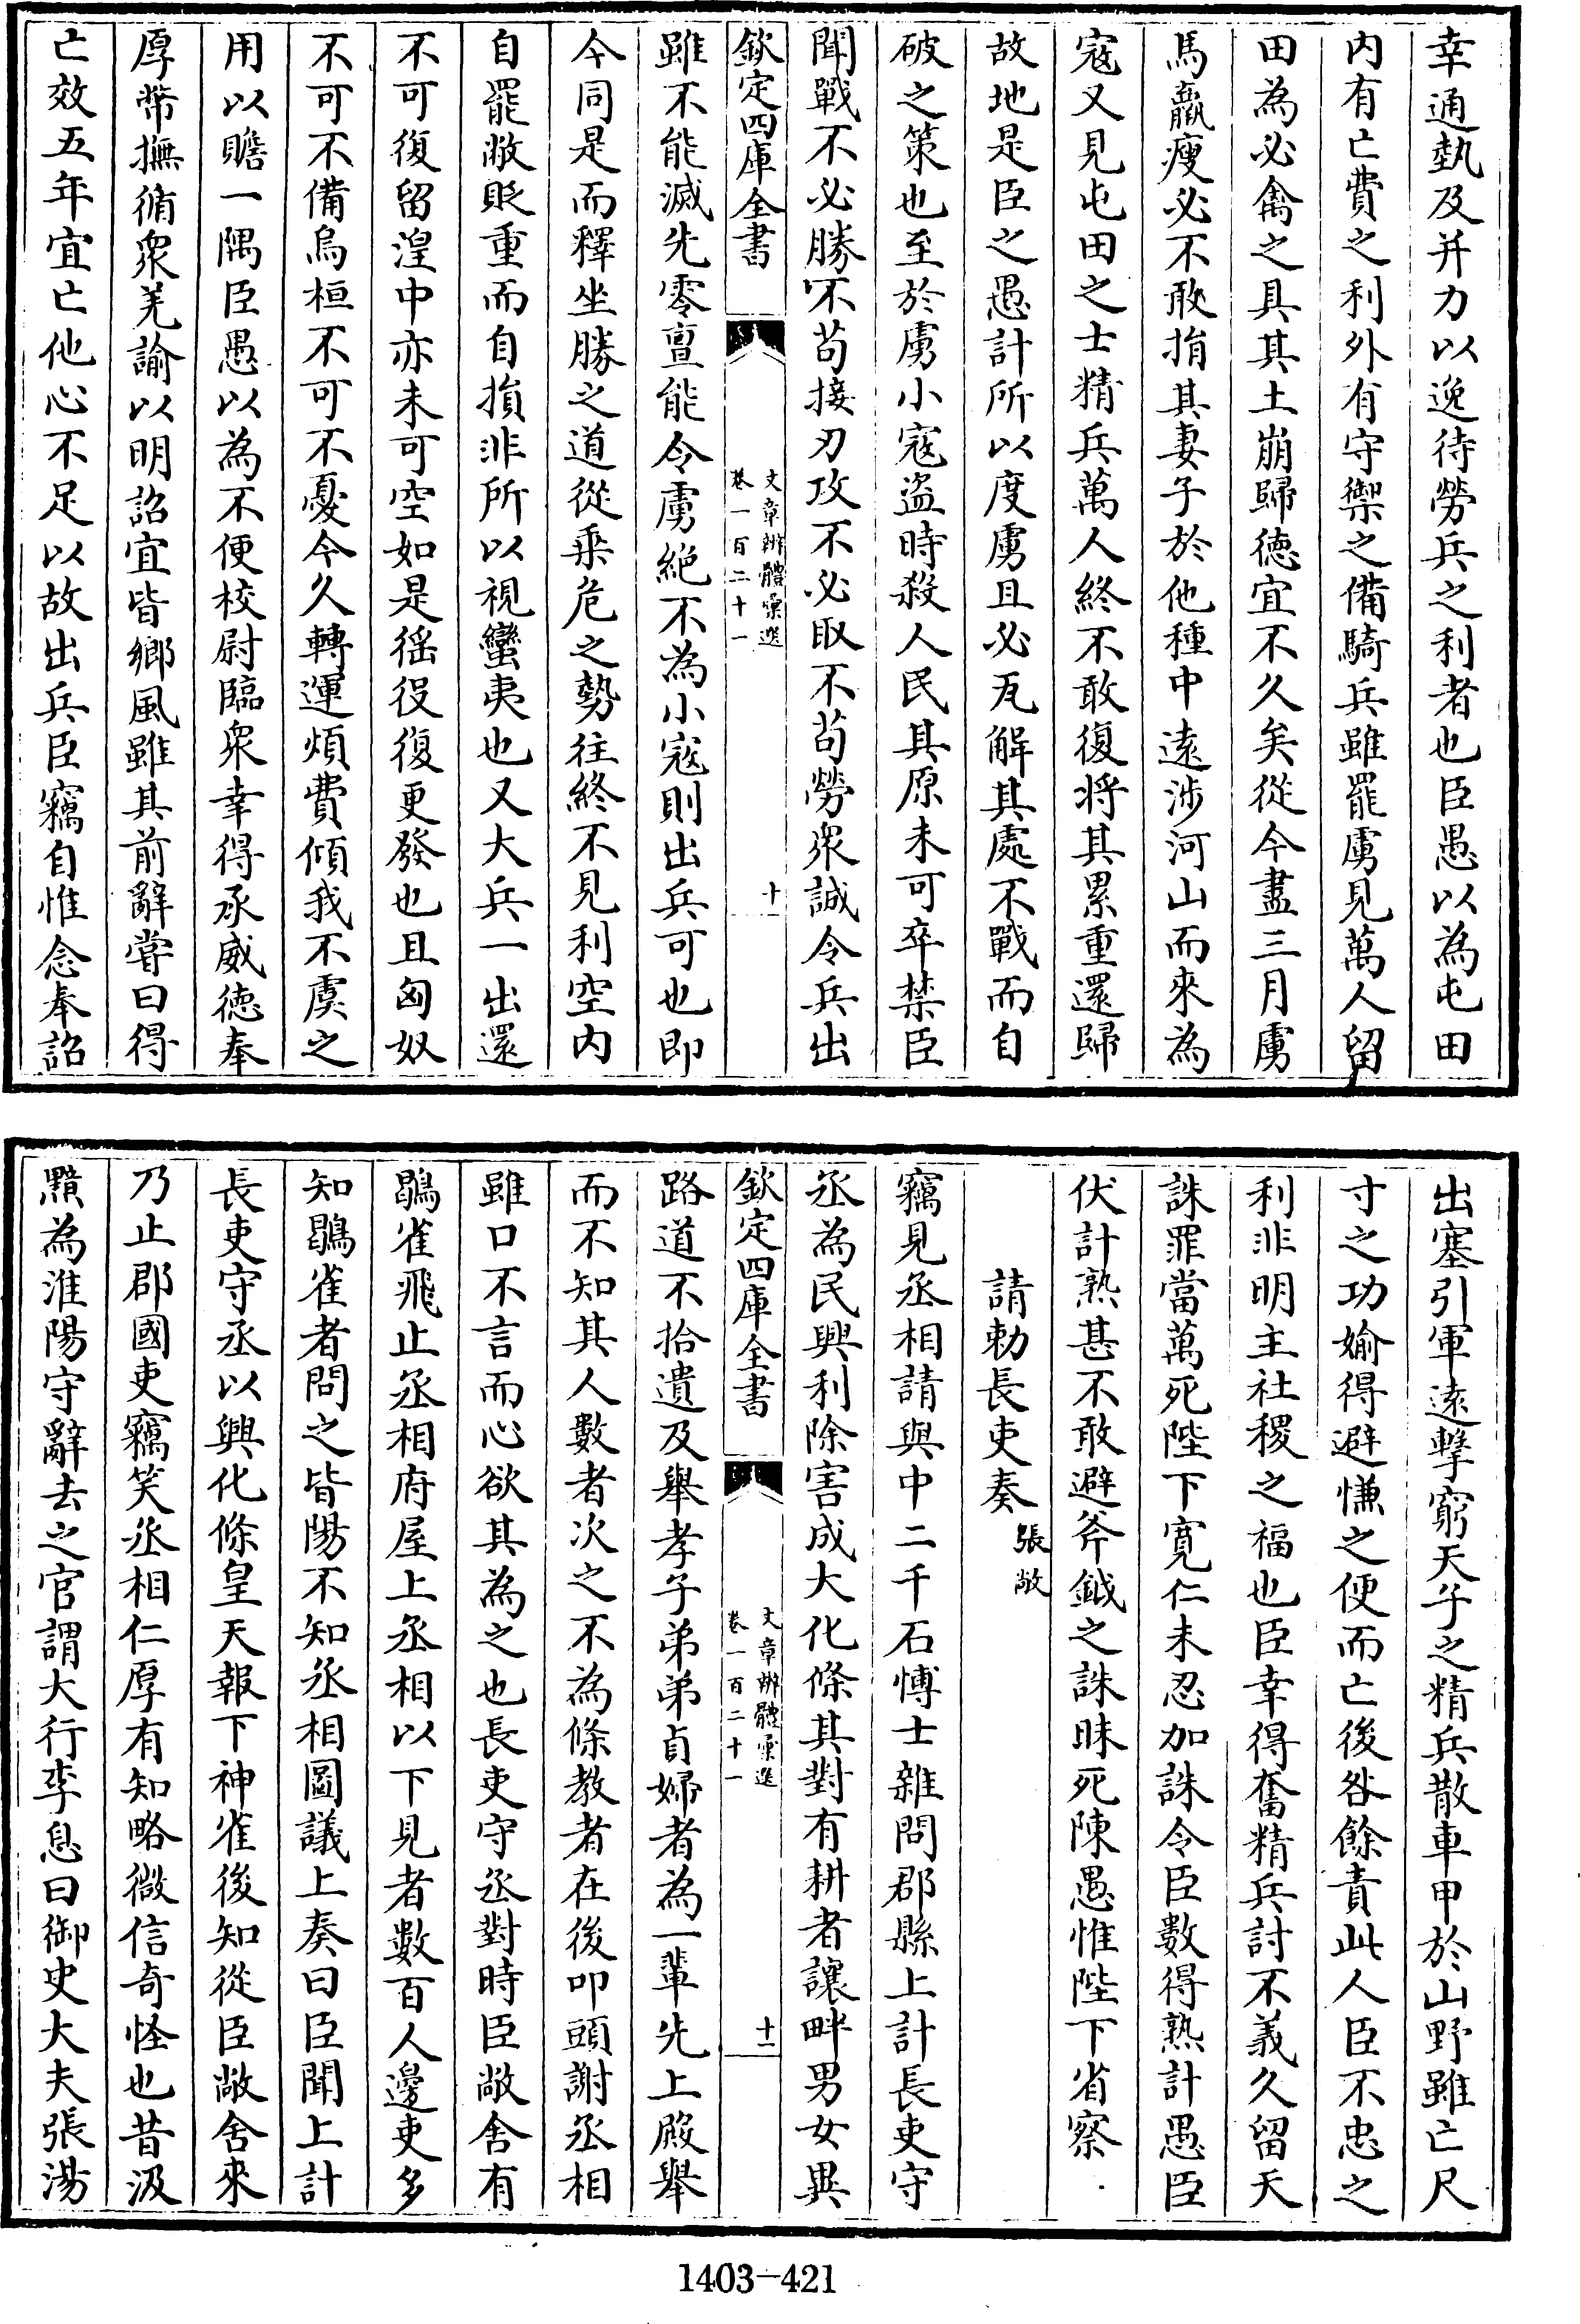 幸通埶及并力以逸待勞兵之利者也臣愚以為屯田
内有亡費之利外有守禦之備騎兵雖罷虜見萬人留
田為必禽之具其土崩歸德宜不久矣從今盡三月虜
馬羸瘦必不敢捐其妻子於他種中遠涉河山而來為
寇又見屯田之士精兵萬人終不敢復將其累重還歸
故地是臣之愚計所以度虜且必瓦解其處不戰而自
破之策也至於虜小寇盜時殺人民其原未可卒禁臣
聞戰不必勝不苟接刃攻不必取不苟勞衆誠令兵出
欽定四庫全書
文章辨體彙選
卷一百二十一
十
雖不能滅先零亶能令虜絶不為小寇則出兵可也即
今同是而釋坐勝之道從乘危之勢往終不見利空内
自罷敝貶重而自損非所以視蠻夷也又大兵一出還
不可復留湟中亦未可空如是徭役復更發也且匈奴
不可不備烏桓不可不憂今久轉運煩費傾我不虞之
用以贍一隅臣愚以為不便校尉臨衆幸得承威德奉
厚幣撫循衆羌諭以明詔宜皆鄉風雖其前辭嘗曰得
亡效五年宜亡他心不足以故出兵臣竊自惟念奉詔
出塞引軍遠擊窮天子之精兵散車甲於山野雖亡尺
寸之功媮得避慊之便而亡後咎餘責此人臣不忠之
利非明主社稷之福也臣幸得奮精兵討不義久留天
誅罪當萬死陛下寛仁未忍加誅令臣數得熟計愚臣
伏計熟甚不敢避斧鉞之誅昧死陳愚惟陛下省察
請勅長吏奏 張敞
竊見丞相請與中二千石博士雜問郡縣上計長吏守
丞為民興利除害成大化條其對有耕者讓畔男女異
欽定四庫全書
文章辨體彙選
卷一百二十一
十一
路道不拾遺及舉孝子弟弟貞婦者為一輩先上殿舉
而不知其人數者次之不為條教者在後叩頭謝丞相
雖口不言而心欲其為之也長吏守丞對時臣敞舍有
鶡雀飛止丞相府屋上丞相以下見者數百人邊吏多
知鶡雀者問之皆陽不知丞相圖議上奏曰臣聞上計
長吏守丞以興化條皇天報下神雀後知從臣敞舍來
乃止郡國吏竊笑丞相仁厚有知略微信奇怪也昔汲
黯為淮陽守辭去之官謂大行李息曰御史大夫張湯
1403-421